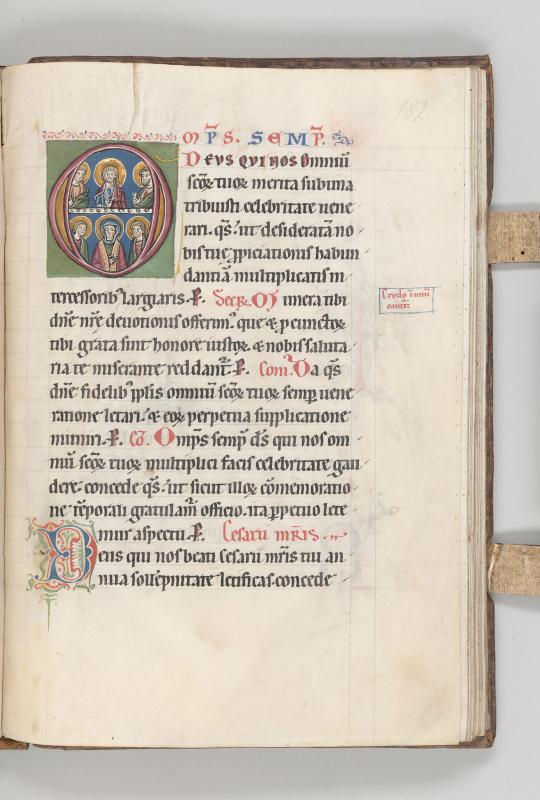 182
OMP̄S. SEMP̄.
DEVS QVI NOS Omniū
scōꝝ tuoꝝ merita sub una
tribuisti celebritate uene
rari. q̄s. ut desideratā no
bis tuę ꝓpiciationis habun
dantiā multiplicatis in
tercessoribꝰ largiaris. P. Secr. Munera tibi
dn̄e nr̄e deuotionis offerimꝰ. que & ꝓ cunctoꝝ
tibi grata sint honore iustoꝝ. & nobis saluta
ria te miserante reddant᷑. P. Com. Da q̄s
dn̄e fidelibꝰ pplis omniū scōꝝ tuoꝝ semꝑ uene
ratione letari. & eoꝝ perpetua supplicatione
muniri. P. Co. Omp̄s semp̄ ds̄ qui nos om
niū scōꝝ tuoꝝ multiplici facis celebritate gau
dere. concede q̄s. ut sicut illoꝝ cōmemoratio
ne tēporali gratulam̄ officio. ita ꝑpetuo lete
mur aspectu. P. Cesarii mr̄is.
Deus qui nos beati Cesarii mr̄is tui an
nua sollēpnitate letificas. concede
Credo in unū